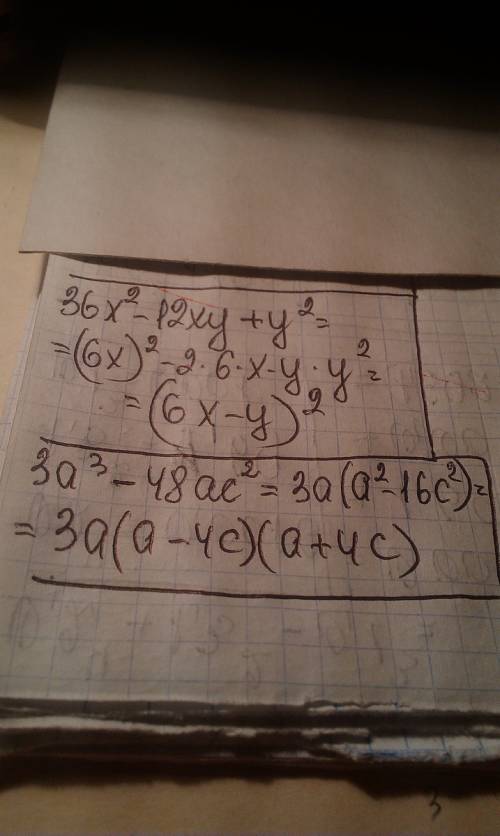 36x² - 12xy + y² =
= (6x)² - 2 · 6 · x - y · y² =
= (6x - y)²
3a³ - 48ac² = 3a(a² - 16c²) =
= 3a(a - 4c)(a + 4c)